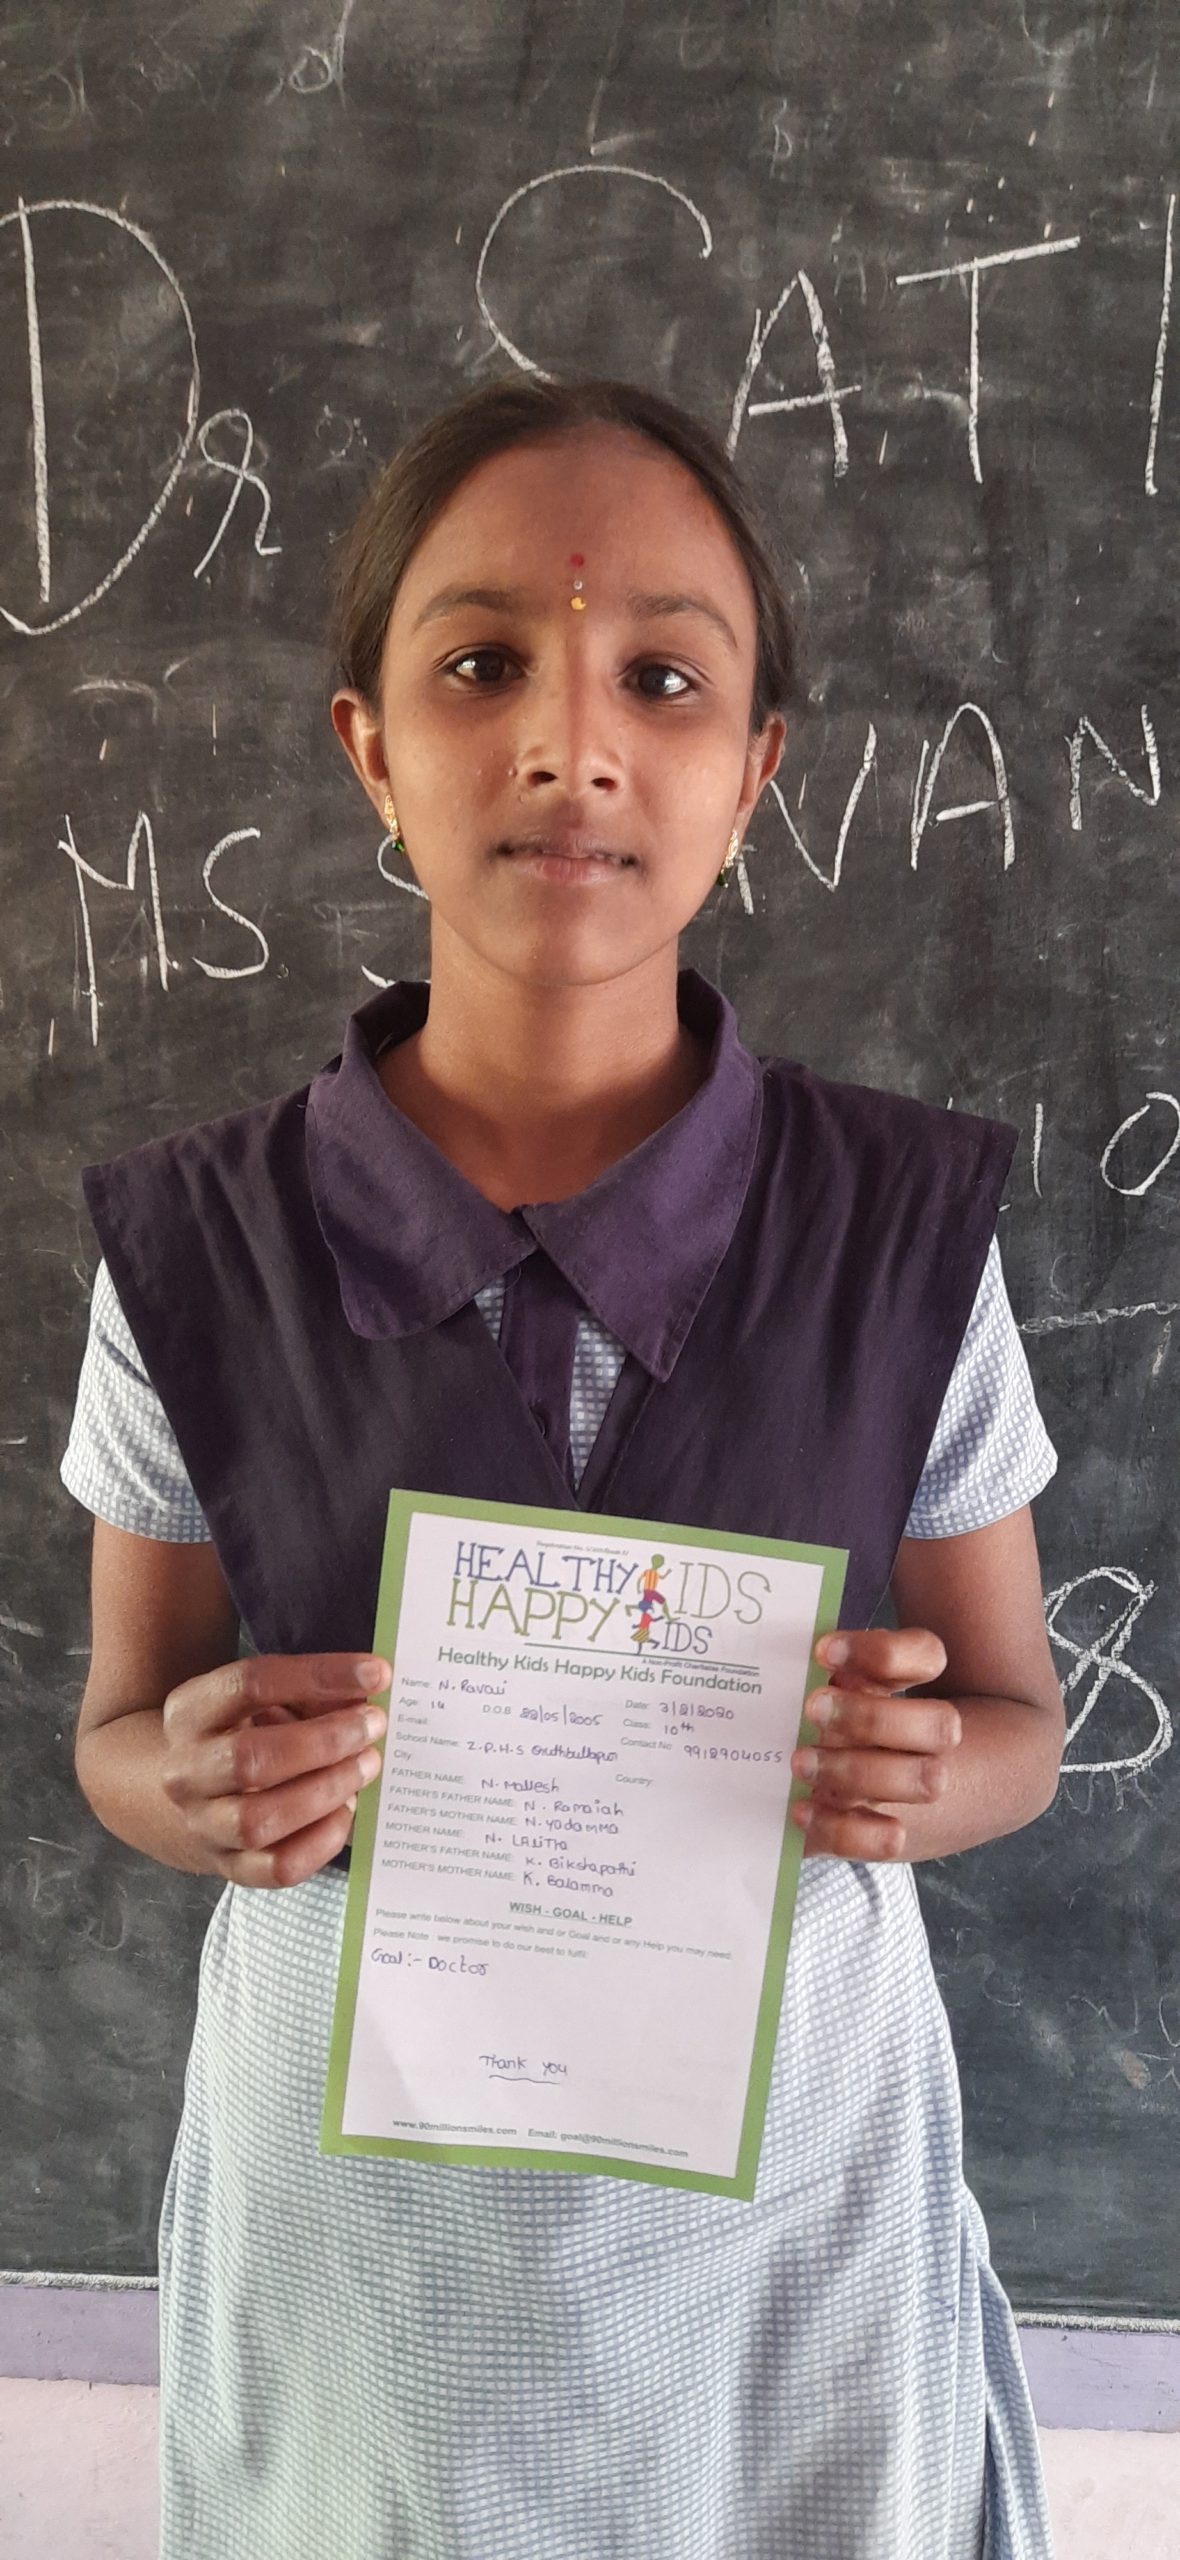 Dr SATI
MS S VAN
10
8
HEALTHY KIDS
HAPPY KIDS
A Non-Profit Charitable Foundation
Healthy Kids Happy Kids Foundation
Name: N. Ravali Date: 3/2/2020
Age: 14 D.O.B 22/05/2005 Class: 10th
E-mail: Contact No: 9912904055
School Name: Z.P.H.S
City: Country:
FATHER NAME: N. Mallesh
FATHER'S FATHER NAME: N. Ramaiah
FATHER'S MOTHER NAME: N. Yadamma
MOTHER NAME: N. LAliTha
MOTHER'S FATHER NAME: K. Bikshapathi
MOTHER'S MOTHER NAME: K. Balamma
WISH - GOAL - HELP
Please write below about your wish and or Goal and or any Help you may need.
Please Note : we promise to do our best to fulfil:
Goal :- Doctor
Thank you
www.90millionsmiles.com Email: goal@90millionsmiles.com